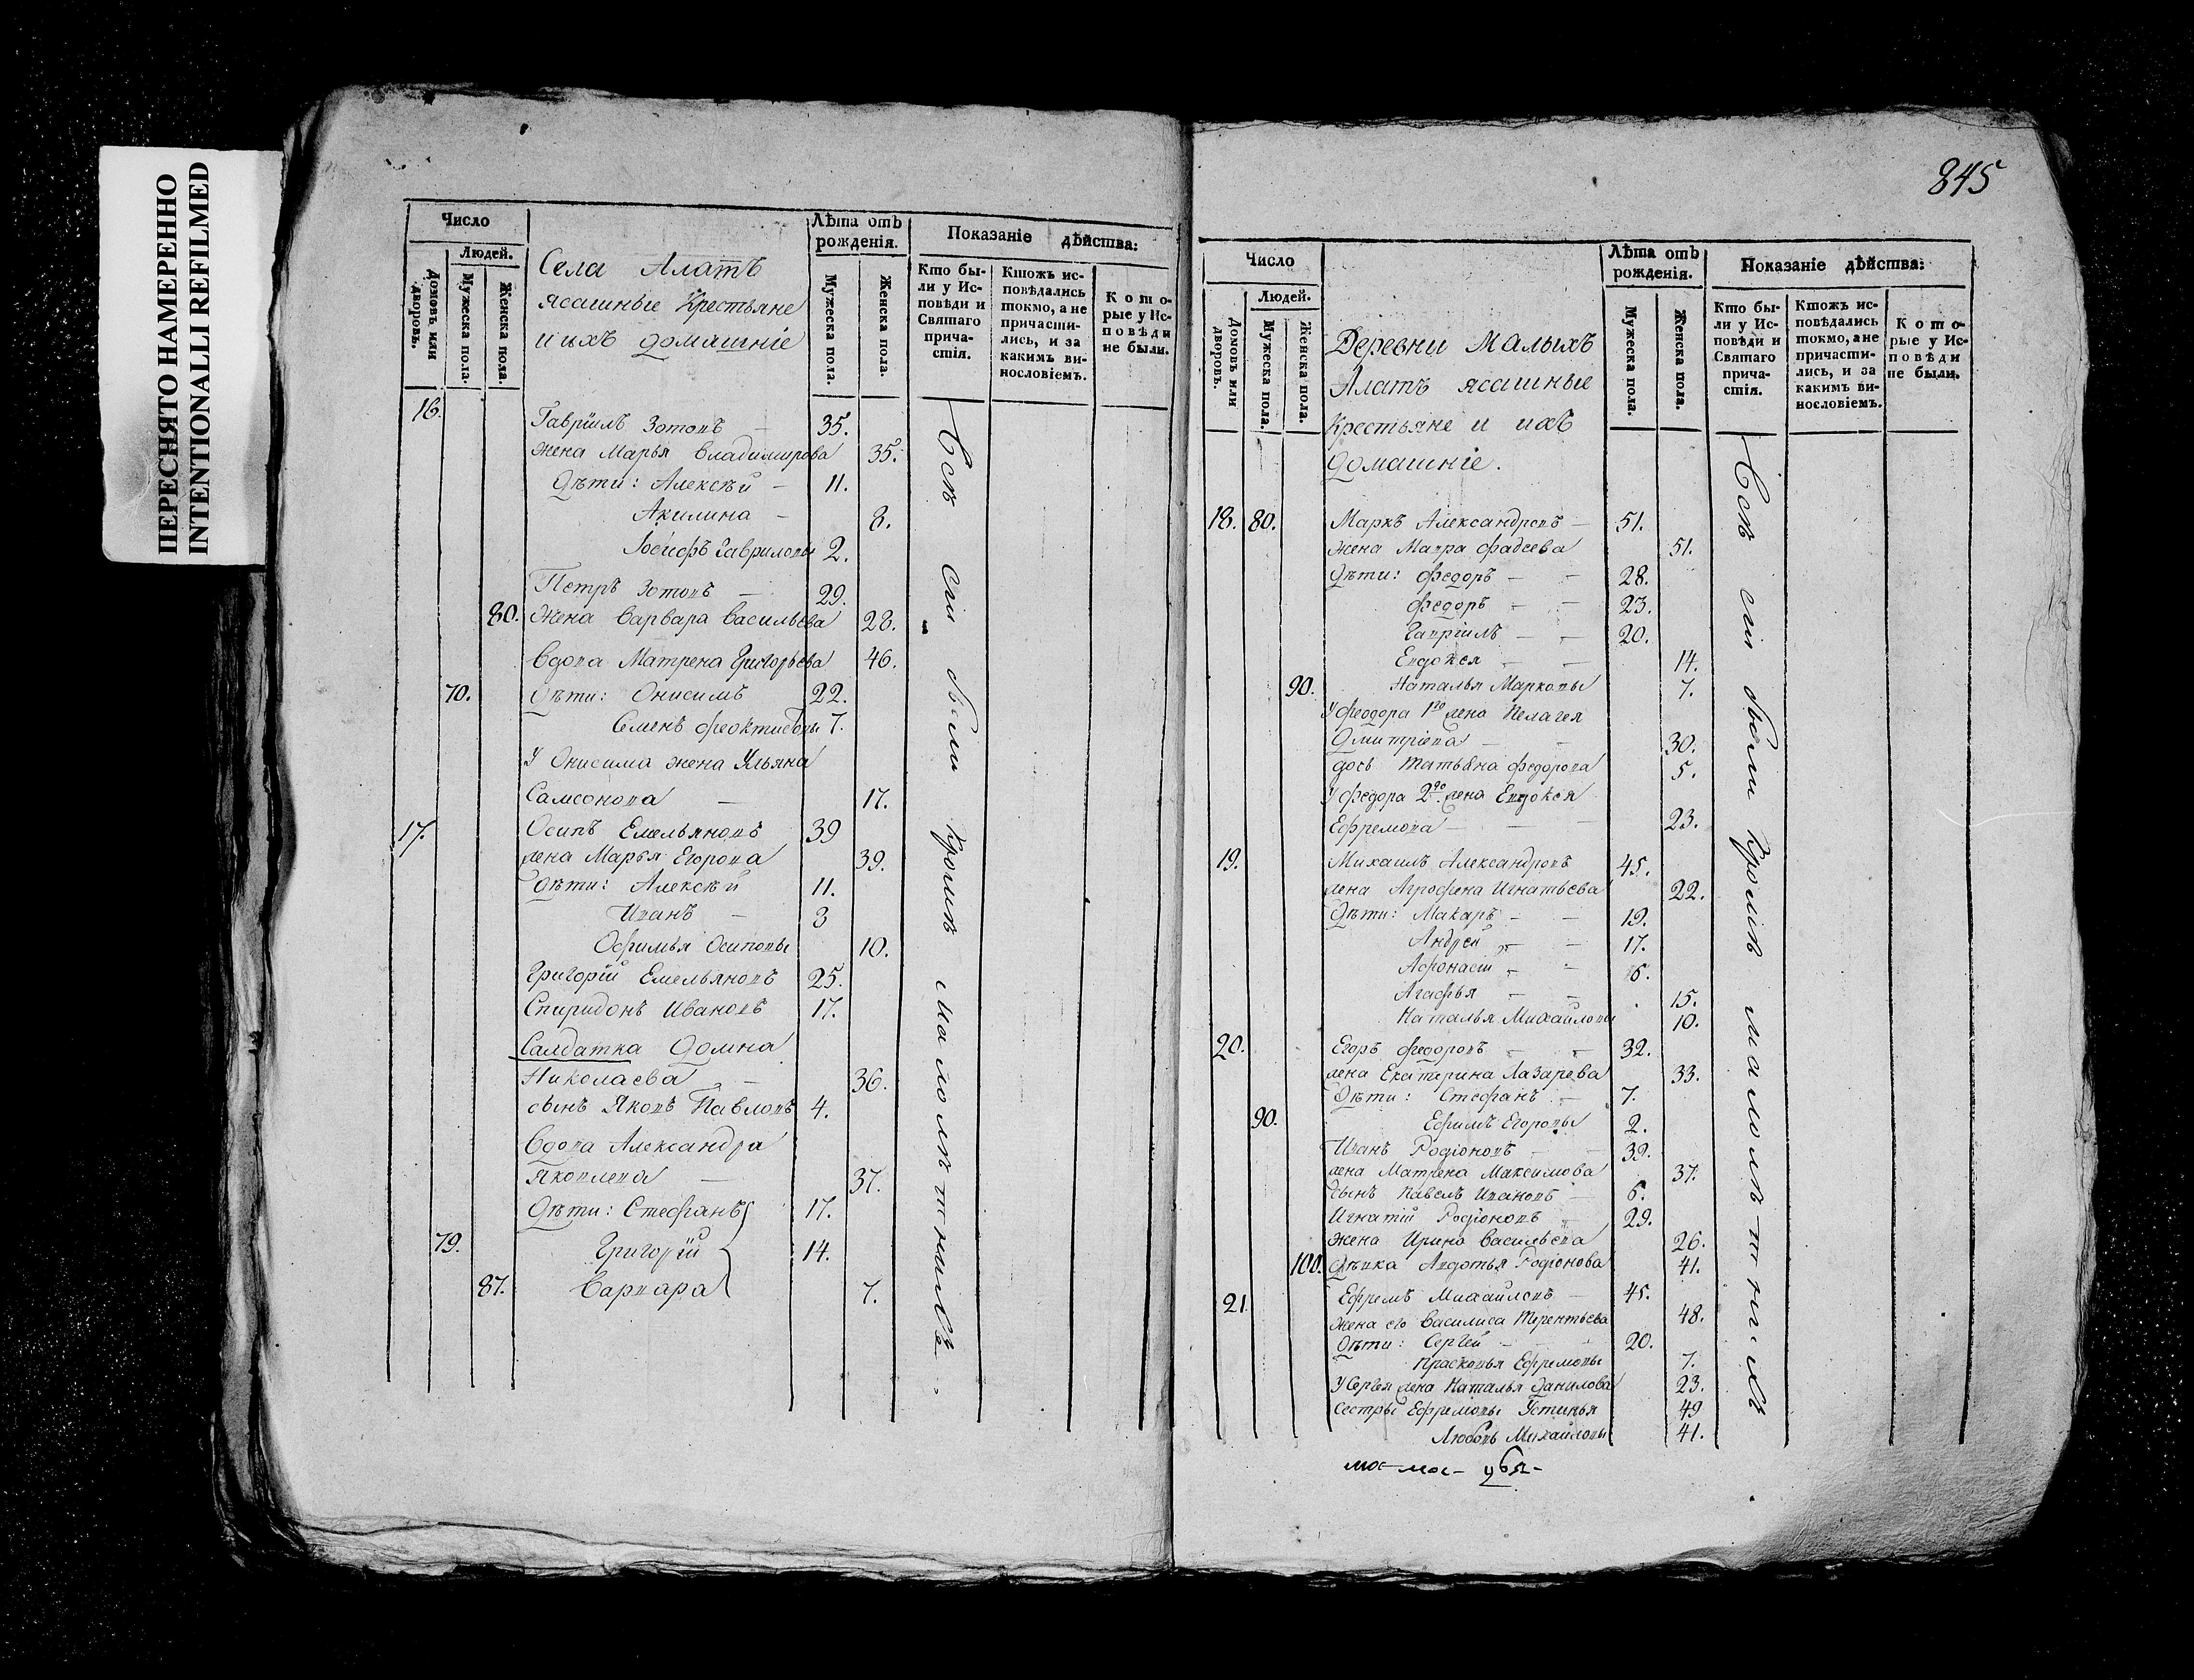 ПЕРЕСНЯТО НАМЕРЕННО
INTENTIONALLI REFILMED
Число
Людей.
Домовъ или дворовъ.
Мужеска пола.
Женска пола.
Села Алатъ
ясашные Крестьяне
и ихъ домашніе
Лѣта отъ рожденія.
Мужеска пола.
Женска пола.
Показаніе дѣйства:
Кто бы-
ли у Ис-
повѣди и
Святаго
прича-
стія.
Ктожъ ис-
повѣдались
токмо, а не
причасти-
лись, и за
какимъ ви-
нословіемъ.
Кото-
рые у Ис-
повѣди
не были.
16. Гавріилъ Зотовъ — 35.
жена Марья Владимирова 35.
Дѣти: Алексѣй — 11.
Акилина — 8.
Іосифъ Гавриловы 2.
Петръ Зотовъ — 29.
80. Жена Варвара Васильева 28.
Вдова Матрена Григорьева 46.
70. Дѣти: Онисимъ 22.
Семенъ Феоктистовы 7.
У Онисима жена Ульяна
Самсонова — 17.
17. Осипъ Емельяновъ 39
жена Марья Егорова 39.
Дѣти: Алексѣй 11.
Иванъ — 3
Офимья Осиповы 10.
Григорій Емельяновъ 25.
Спиридонъ Ивановъ 17.
Салдатка Домна
Николаева — 36.
сынъ Яковъ Павловъ 4.
Вдова Александра
Яковлева — 37.
Дѣти: Стефанъ 17.
79. Григорій 14.
87. Варвара 7.
Всѣ сіи были кромѣ малолѣтнихъ
845
Число
Людей.
Домовъ или дворовъ.
Мужеска пола.
Женска пола.
Деревни Малыхъ
Алатъ ясашные
Крестьяне и ихъ
домашніе.
Лѣта отъ рожденія.
Мужеска пола.
Женска пола.
Показаніе дѣйства:
Кто бы-
ли у Ис-
повѣди и
Святаго
прича-
стія.
Ктожъ ис-
повѣдались
токмо, а не
причасти-
лись, и за
какимъ ви-
нословіемъ.
Кото-
рые у Ис-
повѣди
не были.
18. 80. Маркъ Александровъ — 51.
жена Мавра Фадеева 51.
Дѣти: Федоръ — — 28.
Федоръ — — 23.
Гавріилъ — — 20.
Евдокея — — 14.
90. Наталья Марковы 7.
У Феодора 1го жена Пелагея
Дмитріева — — 30.
дочь Татьяна Федорова 5.
У Федора 2го жена Евдокея
Ефремова — — — 23.
19. Михаилъ Александровъ 45.
жена Агрофена Игнатьева 22.
Дѣти: Макаръ — — 19.
Андрей — — 17.
Афонасіи — — 6.
Агафья — — 15.
Наталья Михайловы 10.
20. Егоръ Федоровъ — — 32.
жена Екатерина Лазарева 33.
Дѣти: Стефанъ — 7.
90. Ефимъ Егоровы 2.
Иванъ Родіоновъ — — 39.
жена Матрена Максимова 37.
сынъ Павелъ Ивановъ — 6.
Игнатій Родіоновъ — 29.
жена Ирина Васильева 26.
100. Дѣвка Авдотья Родіонова 41.
21. Ефремъ Михайловъ — 45.
жена его Василиса Терентьева 48.
Дѣти: Сергѣй — — 20.
Прасковья Ефремовы 7.
У Сергея жена Наталья Данилова 23.
Сестры Ефремовы Устинья 49
Любовь Михайловы 41.
Всѣ сіи были кромѣ малолѣтнихъ